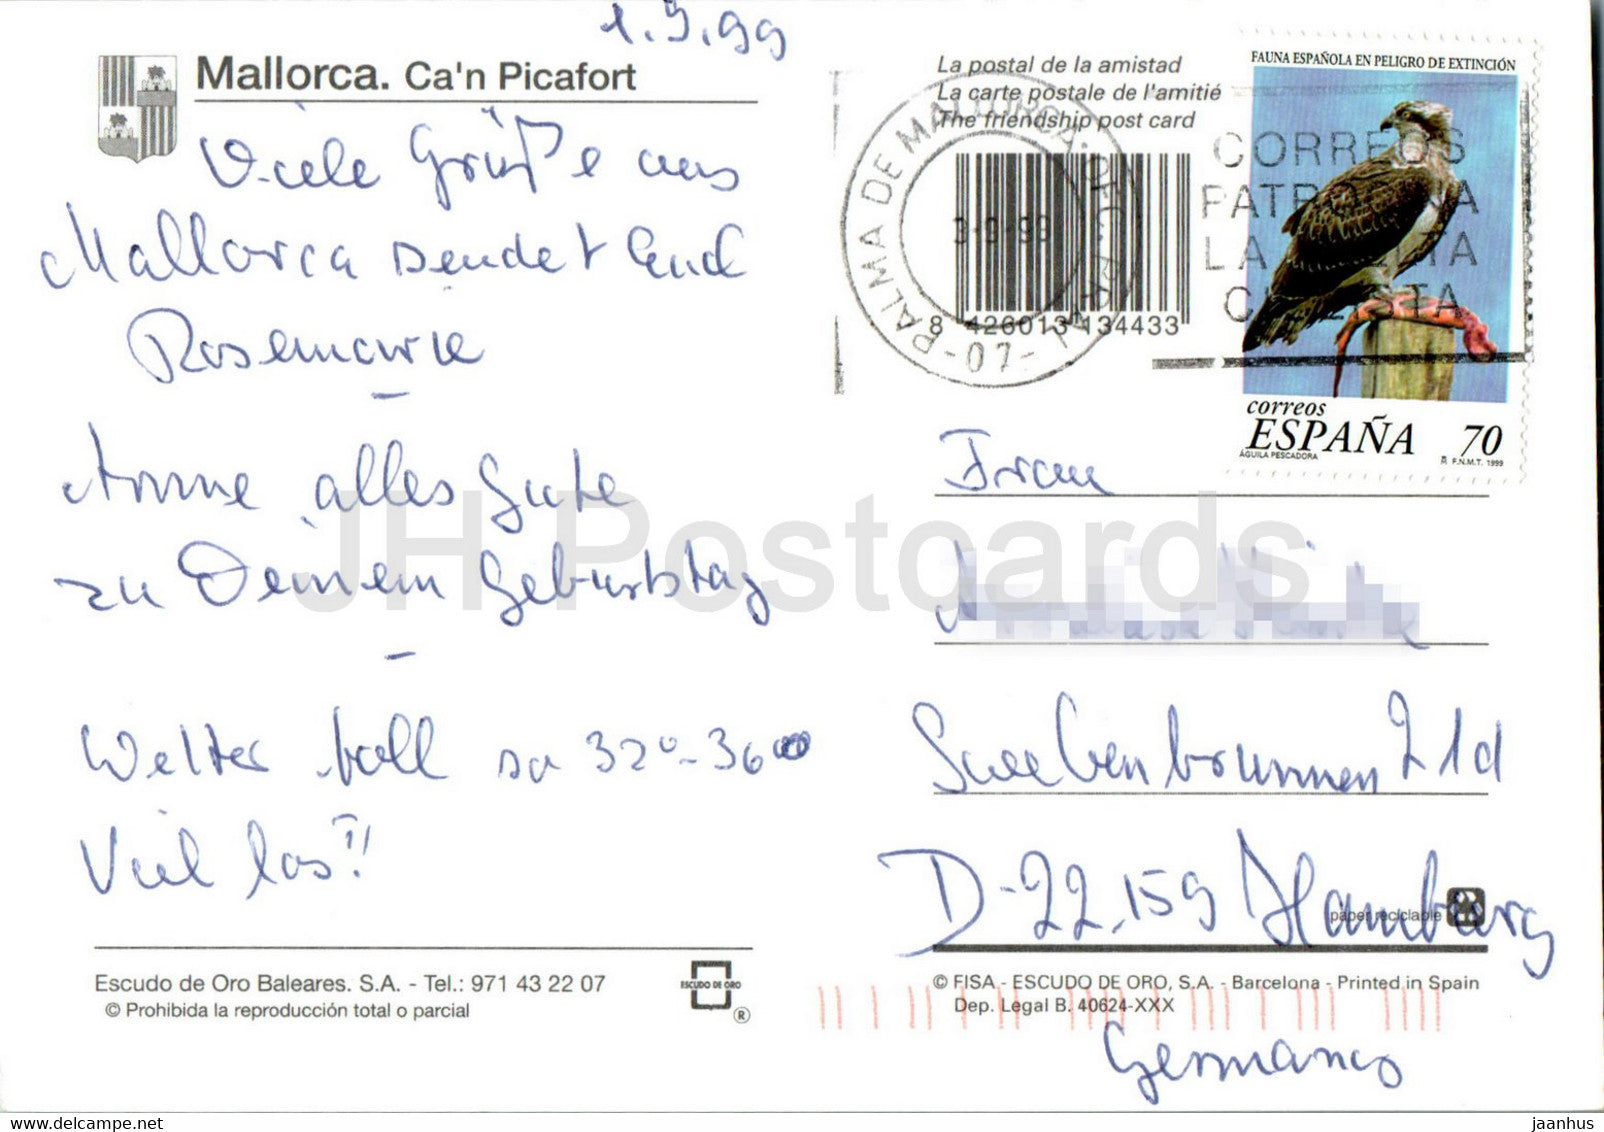 1.9.99
Mallorca. Ca'n Picafort
Viele Grüße aus
Mallorca sendet Euch
Rosemarie
-
Anne alles Gute
zu Deinem Geburtstag
-
Wetter toll so 32°-36°
Viel los!!
Escudo de Oro Baleares. S.A. - Tel.: 971 43 22 07
© Prohibida la reproducción total o parcial
ESCUDO DE ORO
®
La postal de la amistad
La carte postale de l'amitié
The friendship post card
PALMA DE MALLORCA
3-9-99
-07-
8 426013 134433
CORREOS
LA
FAUNA ESPAÑOLA EN PELIGRO DE EXTINCIÓN
correos
ESPAÑA 70
ÁGUILA PESCADORA
F.N.M.T. 1999
Frau
21d
D-22159 Hamburg
papel reciclable
© FISA - ESCUDO DE ORO, S.A. - Barcelona - Printed in Spain
Dep. Legal B. 40624-XXX
Germany
JH Postcards
delcampe.net
jaanhus